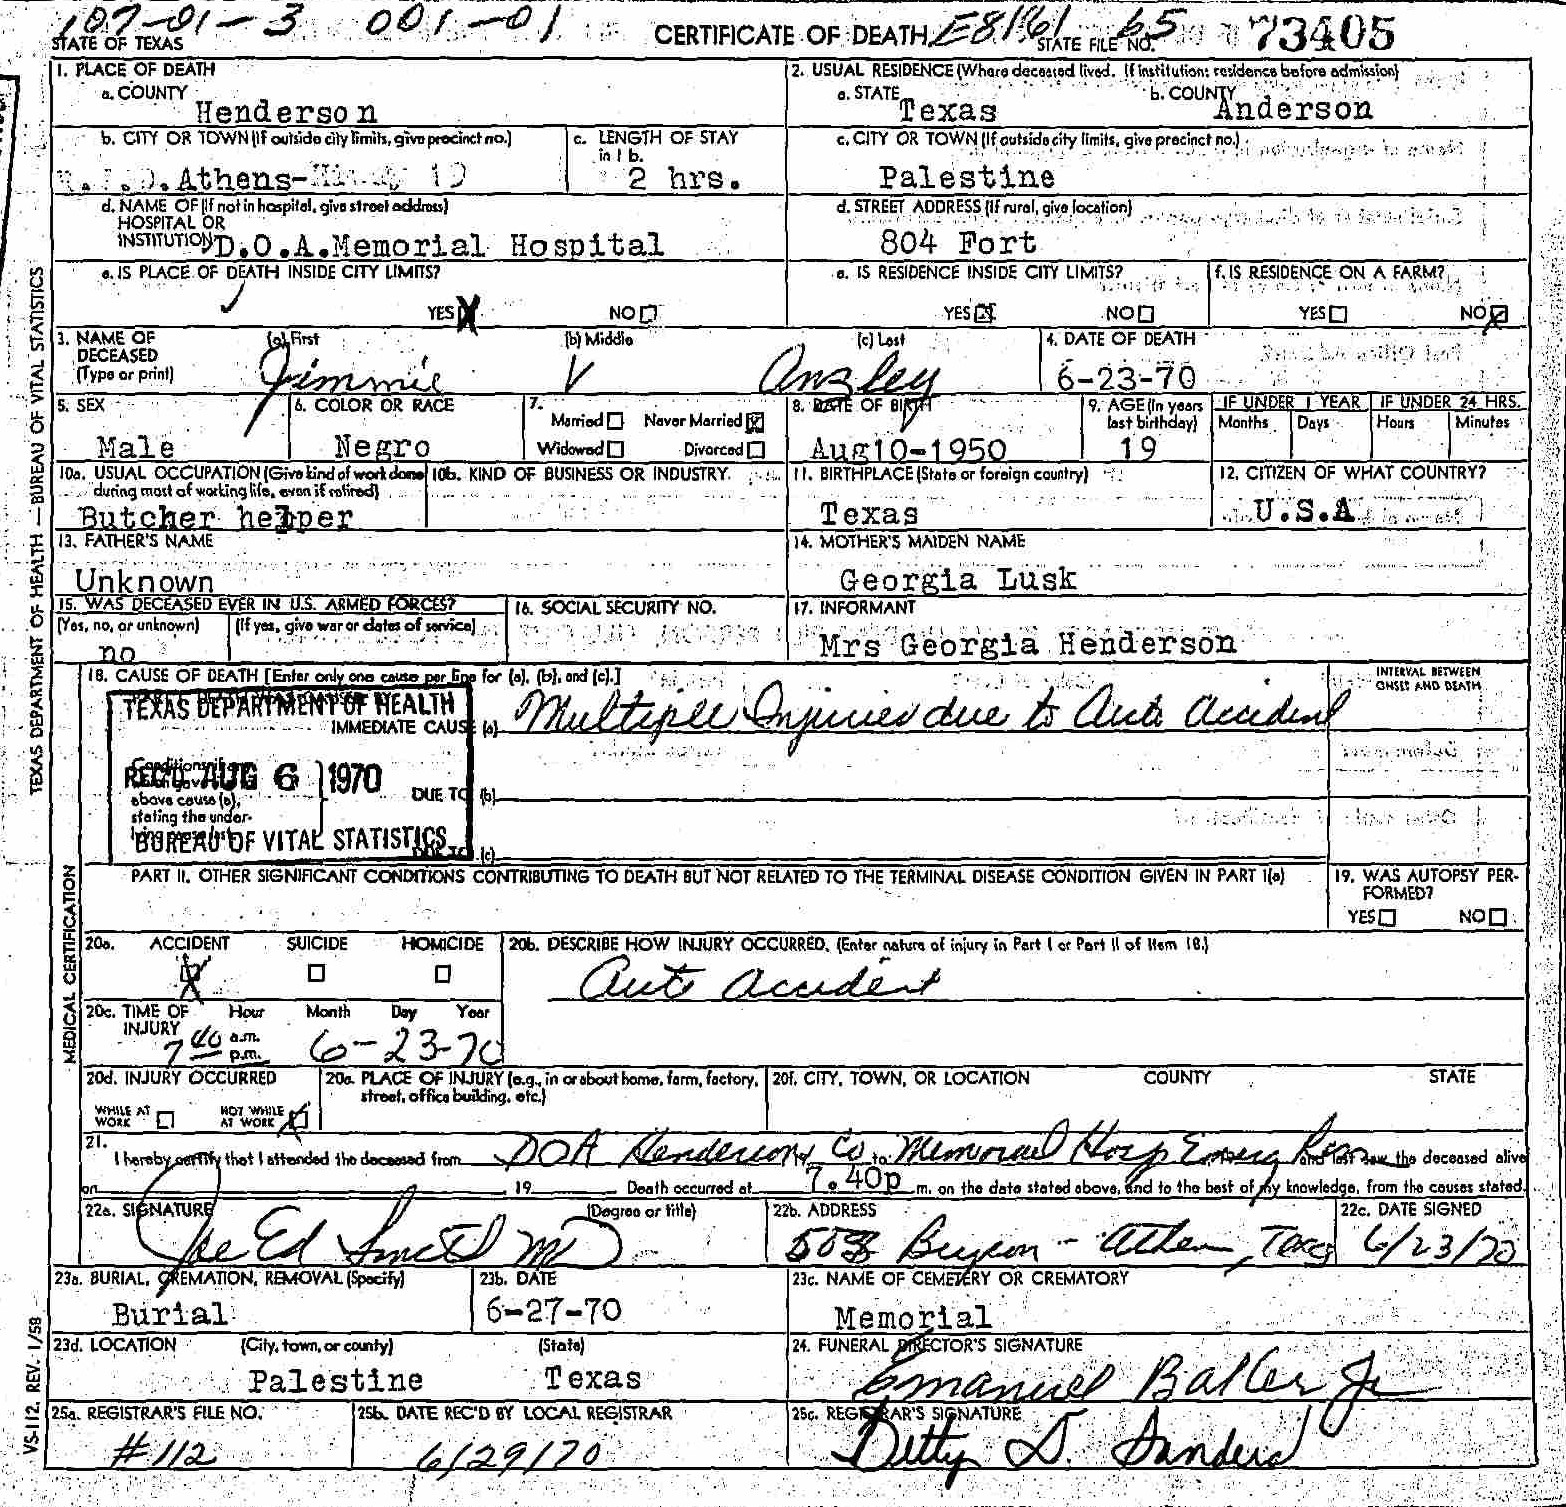 107-01-3 001-01
STATE OF TEXAS CERTIFICATE OF DEATH E8161 STATE FILE NO. 65 73405
1. PLACE OF DEATH
a. COUNTY
Henderson
2. USUAL RESIDENCE (Where deceased lived. If institution: residence before admission)
a. STATE Texas b. COUNTY Anderson
b. CITY OR TOWN (If outside city limits, give precinct no.)
Athens-
c. LENGTH OF STAY in 1 b.
2 hrs.
c. CITY OR TOWN (If outside city limits, give precinct no.)
Palestine
d. NAME OF (If not in hospital, give street address)
HOSPITAL OR
INSTITUTION D.O.A. Memorial Hospital
d. STREET ADDRESS (If rural, give location)
804 Fort
e. IS PLACE OF DEATH INSIDE CITY LIMITS?
YES X NO
e. IS RESIDENCE INSIDE CITY LIMITS?
YES X NO
f. IS RESIDENCE ON A FARM?
YES NO X
3. NAME OF DECEASED (Type or print)
(a) First (b) Middle (c) Last
Jimmie V Anzley
4. DATE OF DEATH
6-23-70
5. SEX
Male
6. COLOR OR RACE
Negro
7. Married Never Married X
Widowed Divorced
8. DATE OF BIRTH
Aug 10-1950
9. AGE (In years last birthday)
19
IF UNDER 1 YEAR IF UNDER 24 HRS.
Months Days Hours Minutes
10a. USUAL OCCUPATION (Give kind of work done during most of working life, even if retired)
Butcher helper
10b. KIND OF BUSINESS OR INDUSTRY
11. BIRTHPLACE (State or foreign country)
Texas
12. CITIZEN OF WHAT COUNTRY?
U.S.A
13. FATHER'S NAME
Unknown
14. MOTHER'S MAIDEN NAME
Georgia Lusk
15. WAS DECEASED EVER IN U.S. ARMED FORCES?
(Yes, no, or unknown) (If yes, give war or dates of service)
no
16. SOCIAL SECURITY NO.
17. INFORMANT
Mrs Georgia Henderson
18. CAUSE OF DEATH [Enter only one cause per line for (a), (b), and (c).]
INTERVAL BETWEEN ONSET AND DEATH
TEXAS DEPARTMENT OF HEALTH
IMMEDIATE CAUSE (a) Multiple Injuries due to Auto Accident
REC'D AUG 6 1970
above cause (a),
stating the under-
DUE TO (b)
BUREAU OF VITAL STATISTICS
DUE TO (c)
PART II. OTHER SIGNIFICANT CONDITIONS CONTRIBUTING TO DEATH BUT NOT RELATED TO THE TERMINAL DISEASE CONDITION GIVEN IN PART I(a)
19. WAS AUTOPSY PERFORMED?
YES NO
20a. ACCIDENT SUICIDE HOMICIDE
X
20b. DESCRIBE HOW INJURY OCCURRED. (Enter nature of injury in Part I or Part II of Item 18.)
Auto Accident
20c. TIME OF INJURY Hour Month Day Year
7 40 a.m. p.m. 6-23-70
20d. INJURY OCCURRED
WHILE AT WORK NOT WHILE AT WORK X
20e. PLACE OF INJURY (e.g., in or about home, farm, factory, street, office building, etc.)
20f. CITY, TOWN, OR LOCATION COUNTY STATE
21. I hereby certify that I attended the deceased from DOA Henderson Co to Memorial Hosp Emerg Room and last saw the deceased alive
on 19 Death occurred at 7.40p m. on the date stated above, and to the best of my knowledge, from the causes stated.
22a. SIGNATURE (Degree or title)
Joe Ed Smith MD
22b. ADDRESS
Athens, Texas
22c. DATE SIGNED
6/23/70
23a. BURIAL, CREMATION, REMOVAL (Specify)
Burial
23b. DATE
6-27-70
23c. NAME OF CEMETERY OR CREMATORY
Memorial
23d. LOCATION (City, town, or county) (State)
Palestine Texas
24. FUNERAL DIRECTOR'S SIGNATURE
Emanuel Bailer Jr
25a. REGISTRAR'S FILE NO.
#112
25b. DATE REC'D BY LOCAL REGISTRAR
6/29/70
25c. REGISTRAR'S SIGNATURE
Betty D. Sanders
TEXAS DEPARTMENT OF HEALTH — BUREAU OF VITAL STATISTICS
MEDICAL CERTIFICATION
VS-112. REV. 1/58